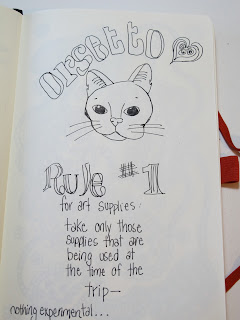 Orsetto
Rule #1
for art supplies:
take only those
supplies that are
being used at
the time of the
trip—
nothing experimental...